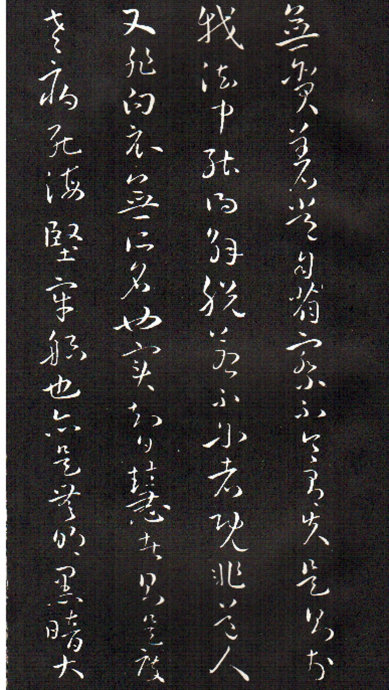 無貪著常自省察不令有失是則於
我法中能得解脫若不爾者既非道人
又非白衣無所名也實智慧者則是度
老病死海堅牢船也亦是無明黑暗大